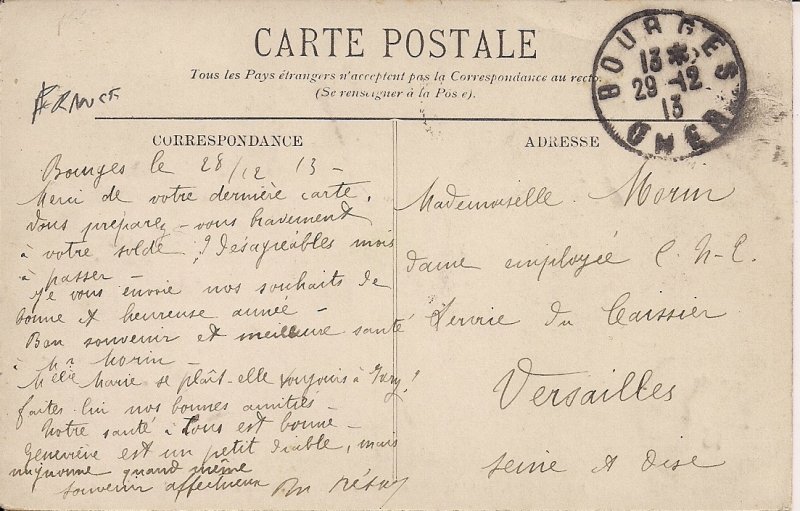 CARTE POSTALE
Tous les Pays étrangers n'acceptent pas la Correspondance au recto.
(Se renseigner à la Poste).
BOURGES
13
29-12
13
CHER
FRANCE
CORRESPONDANCE
Bourges le 28/12 13 -
Merci de votre dernière carte.
Vous préparez-vous bravement
à votre solde ? Désagréables mois
à passer -
Je vous envoie nos souhaits de
bonne et heureuse année -
Bon souvenir et meilleure santé
à Mr Morin -
Melle Marie se plaît-elle toujours à ?
faites lui nos bonnes amitiés -
Notre santé à tous est bonne -
Geneviève est un petit diable, mais
mignonne quand même
souvenir affectueux
ADRESSE
Mademoiselle Morin
dame employée C. N-E.
Service du Caissier
Versailles
Seine et Oise